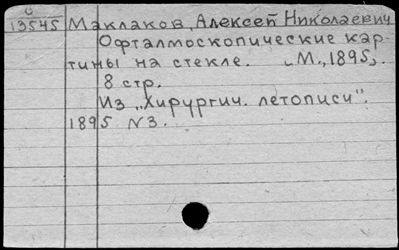 13545 Маклаков, Алексей Николаевич
Офталмоскопические кар-
тины на стекле. „М., 1895„.
8 стр.
Из „Хирургич. летописи".
1895 N3.